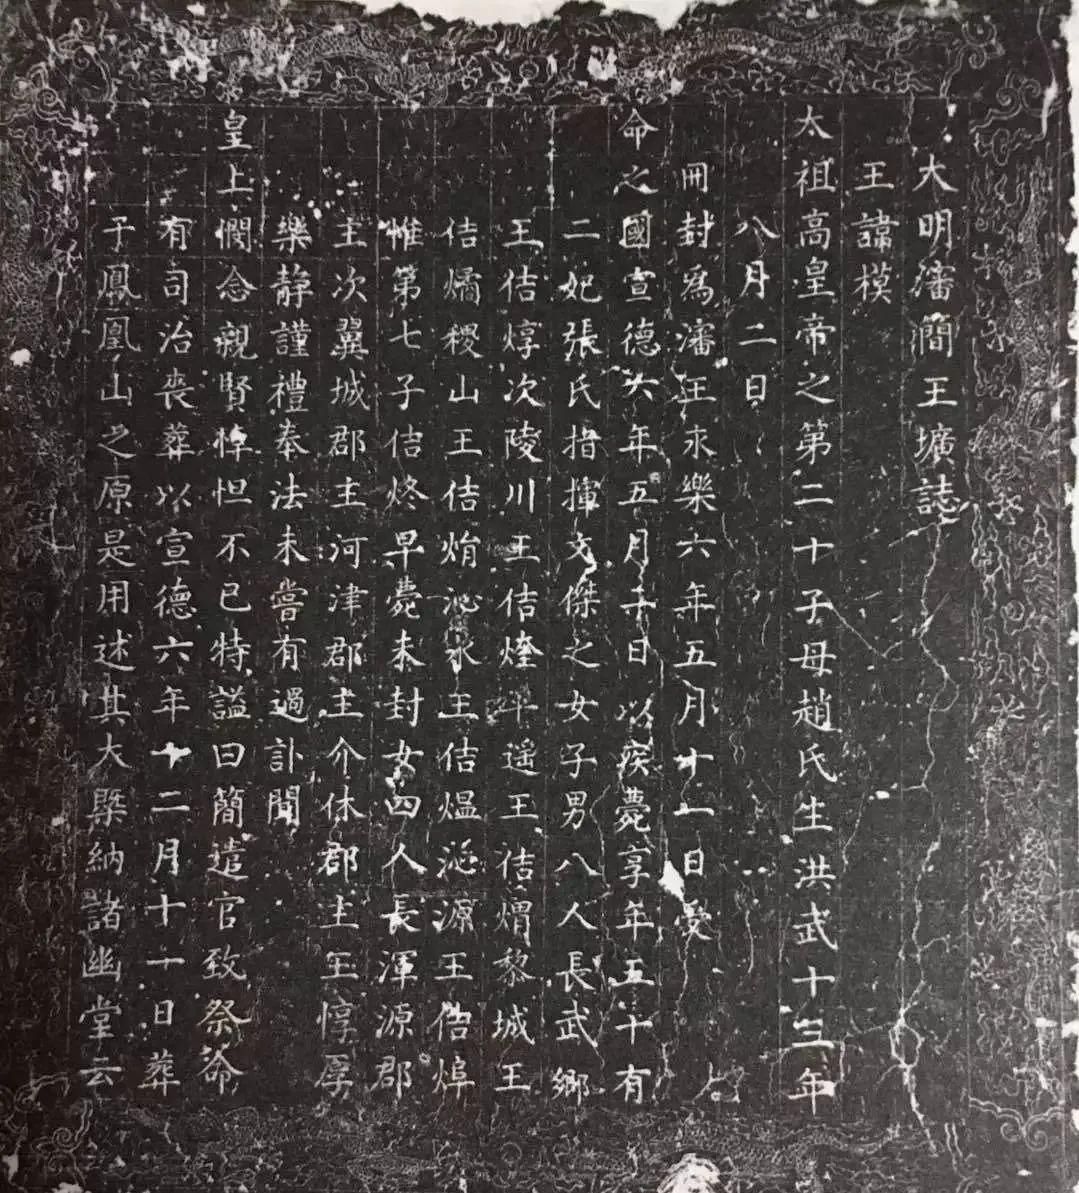 大明瀋簡王壙誌
王諱模
太祖高皇帝之第二十子母趙氏生洪武十三年
八月二日
冊封為瀋王永樂六年五月十一日受
命之國宣德六年五月十日以疾薨享年五十有
二妃張氏指揮文傑之女子男八人長武鄉
王佶焞次陵川王佶㷷平遙王佶㷄黎城王
佶㷾稷山王佶焇沁水王佶熅沁源王佶焞
惟第七子佶炵早薨未封女四人長渾源郡
主次翼城郡主河津郡主介休郡主王惇厚
樂靜謹禮奉法未嘗有過訃聞
皇上憫念親賢悼怛不已特謚曰簡遣官致祭命
有司治喪葬以宣德六年十二月十一日葬
于鳳凰山之原是用述其大槩納諸幽堂云